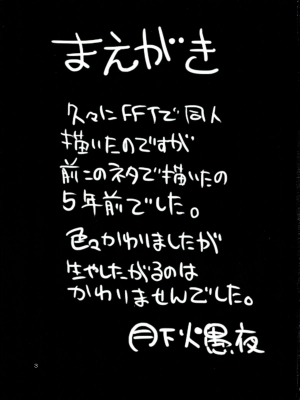 まえがき
久々にFFTで同人
描いたのですが
前このネタで描いたの
5年前でした。
色々かわりましたが
生やしたがるのは
かわりませんでした。
月下火愚夜
3